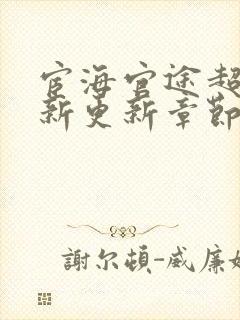 宦海官途超
新更新章節
謝尔頓-威廉